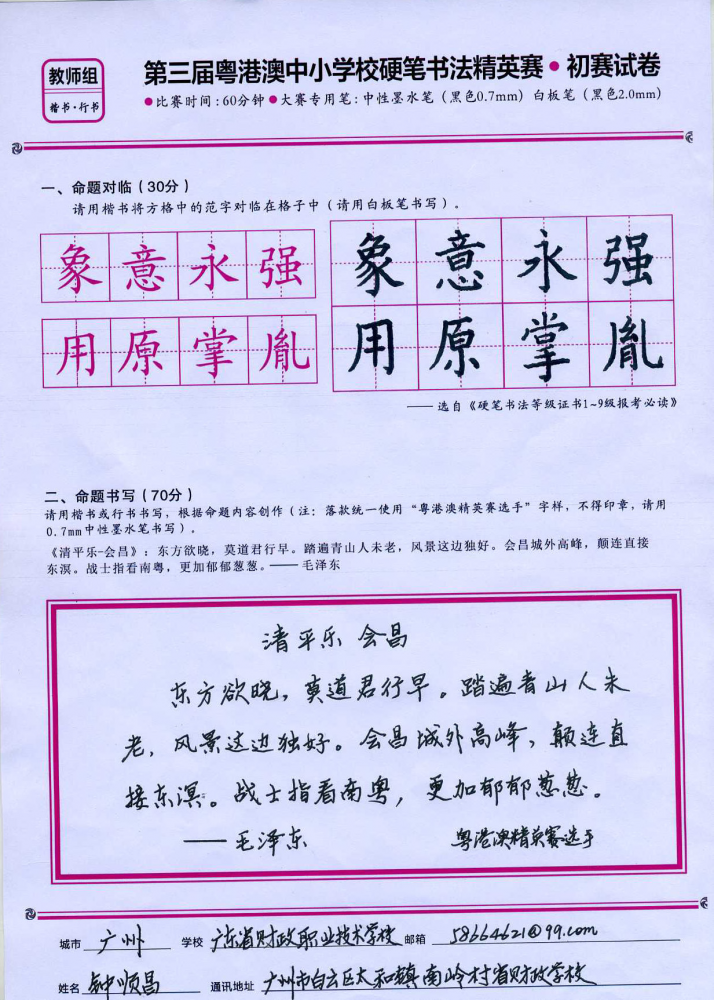 教师组
楷书·行书
第三届粤港澳中小学校硬笔书法精英赛●初赛试卷
●比赛时间:60分钟●大赛专用笔:中性墨水笔(黑色0.7mm)白板笔(黑色2.0mm)
一、命题对临(30分)
请用楷书将方格中的范字对临在格子中(请用白板笔书写)。
象意永强
用原掌胤
象意永强
用原掌胤
——选自《硬笔书法等级证书1~9级报考必读》
二、命题书写(70分)
请用楷书或行书书写,根据命题内容创作(注:落款统一使用“粤港澳精英赛选手”字样,不得印章,请用
0.7mm中性墨水笔书写)。
《清平乐-会昌》:东方欲晓,莫道君行早。踏遍青山人未老,风景这边独好。会昌城外高峰,颠连直接
东溟。战士指看南粤,更加郁郁葱葱。——毛泽东
清平乐 会昌
东方欲晓,莫道君行早。踏遍青山人未
老,风景这边独好。会昌城外高峰,颠连直
接东溟。战士指看南粤,更加郁郁葱葱。
——毛泽东 粤港澳精英赛选手
城市 广州 学校 广东省财政职业技术学校 邮箱 58664621@qq.com
姓名 钟顺昌 通讯地址 广州市白云区太和镇南岭村省财政学校